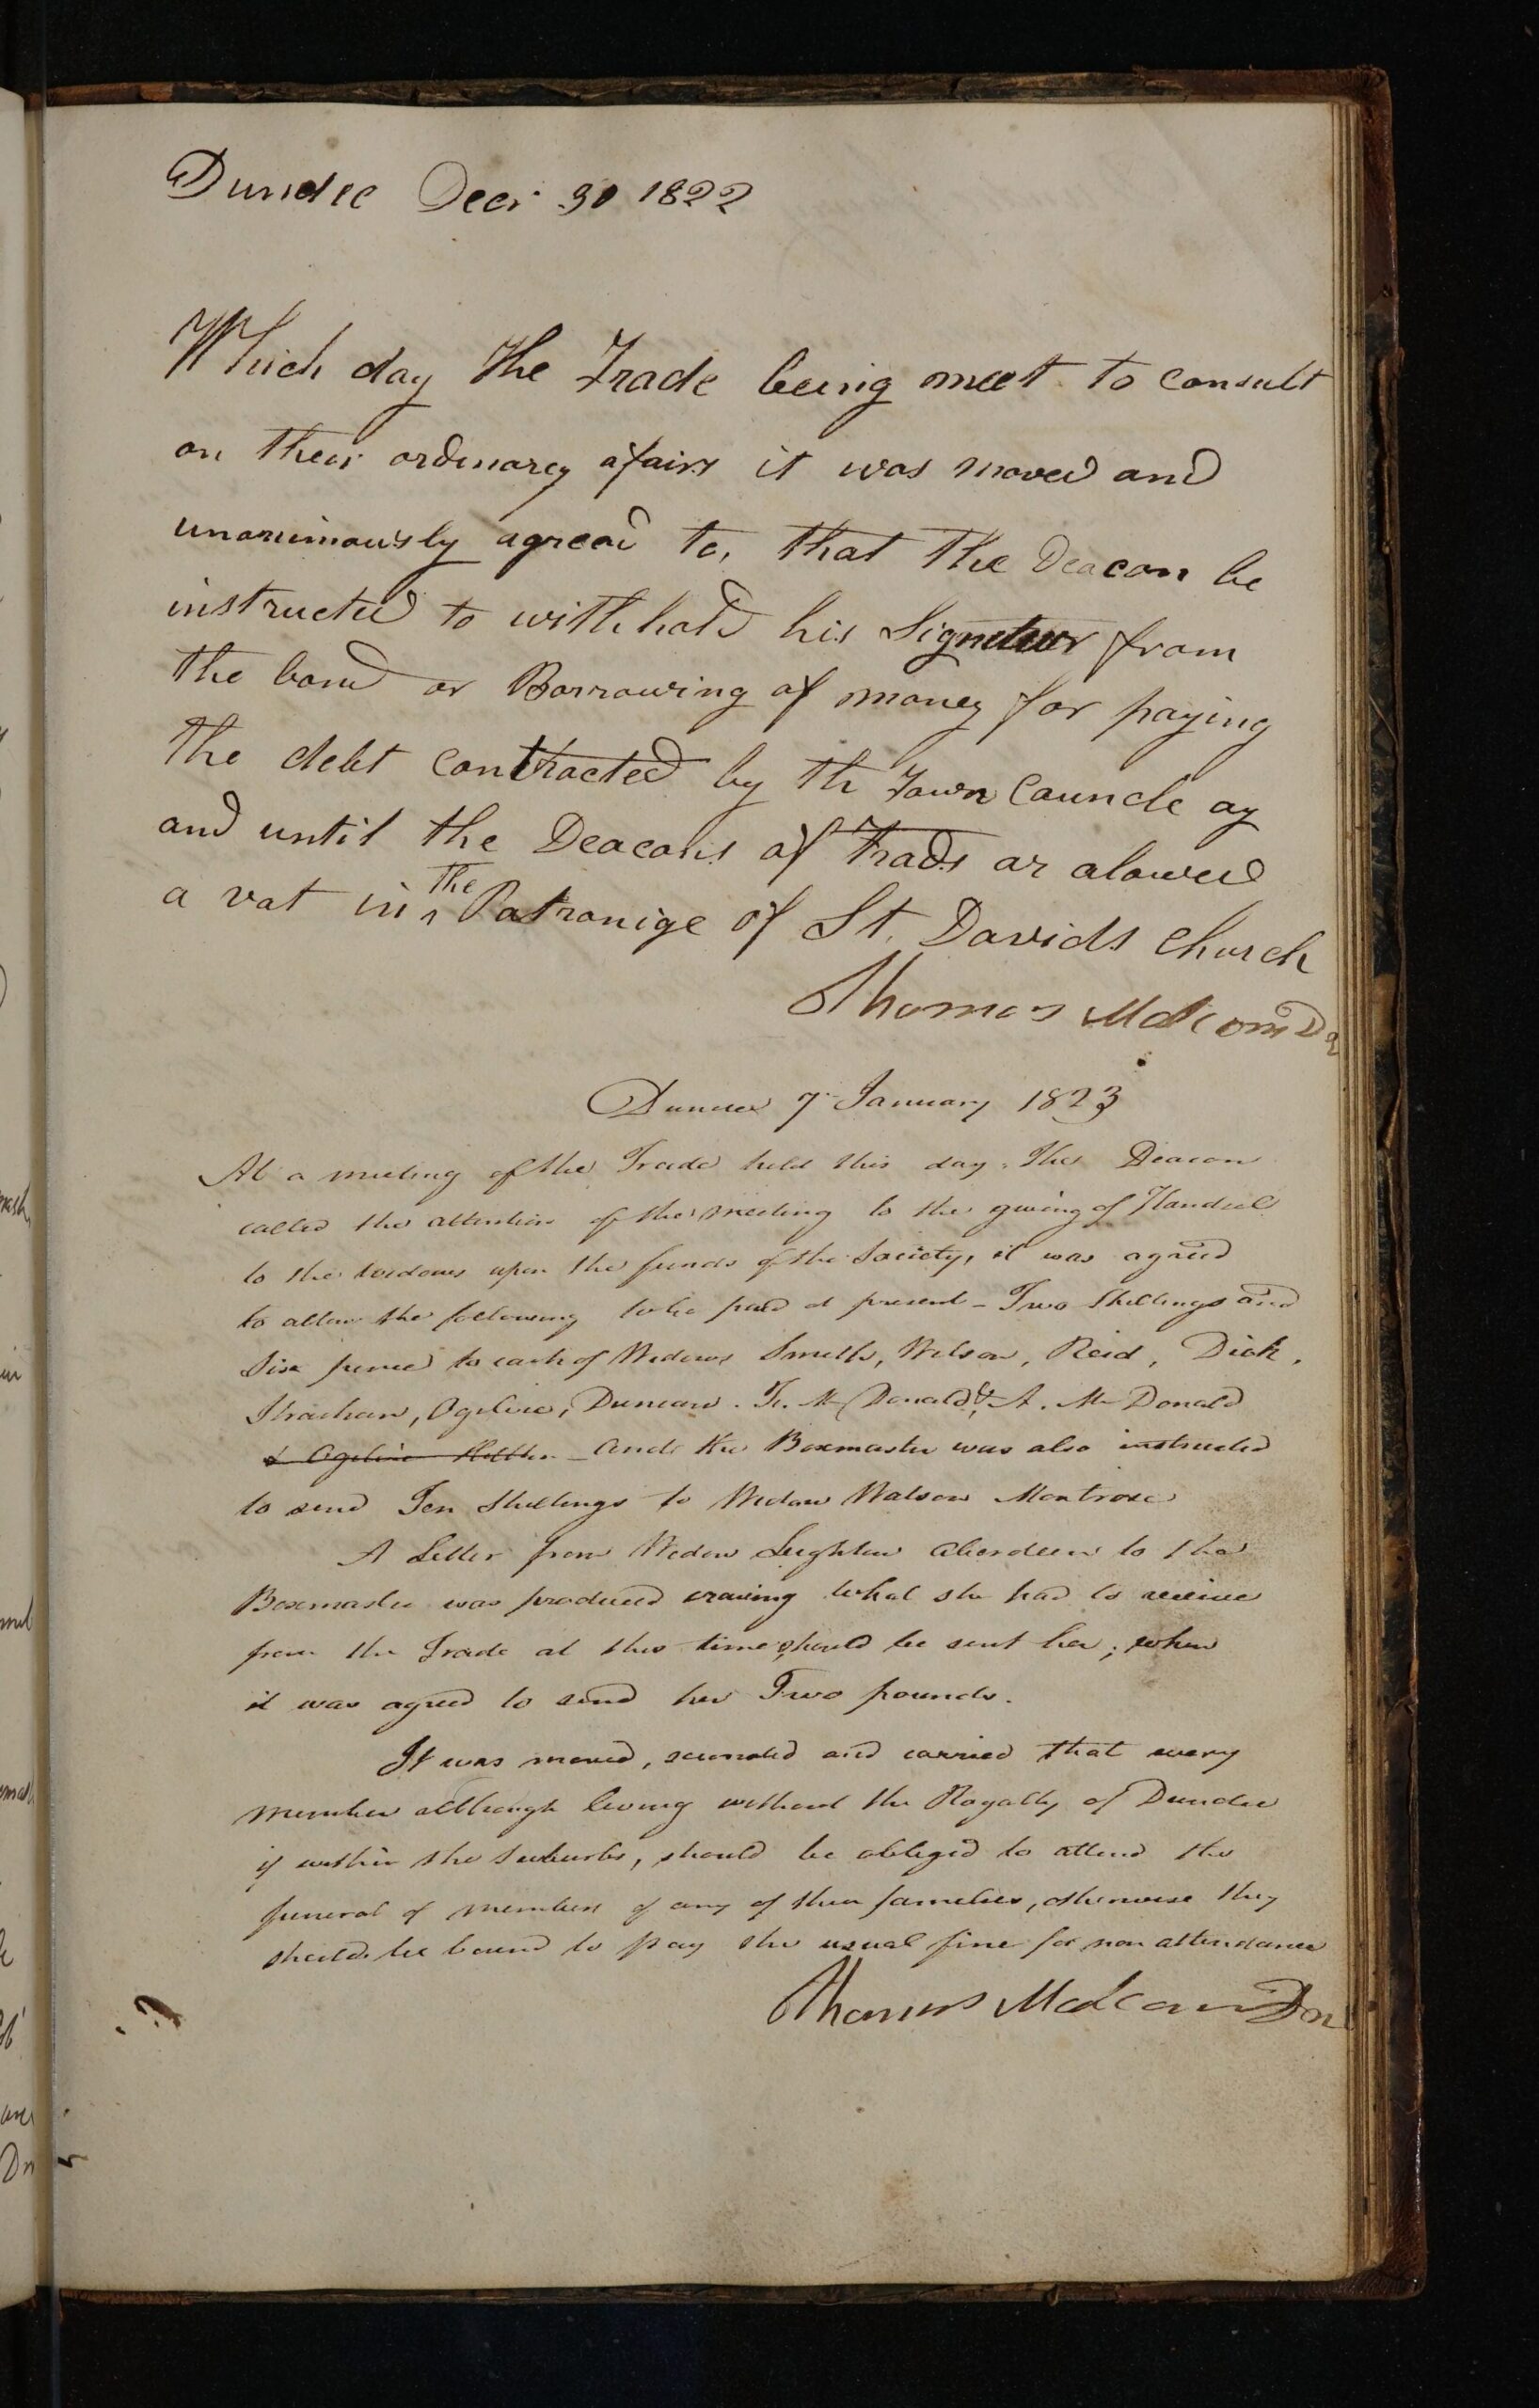 Dundee Decr 30 1822
Which day the Trade being meet to consult
on their ordinarey afairs it was moved and
unanimously agreed to, that the Deacon be
instructed to withhold his Signetuer from
the bond or Borrowing of money for paying
the debt contracted by th Town Councle ay
and until the Deacons of Trads ar alowed
a vot in the Patronige of St. Davids Church
Thomas Malcom Dn
Dundee 7 January 1823
At a meeting of the Trade held this day. The Deacon
called the attention of the Meeting to the giving of Handsel
to the widows upon the funds of the Society, it was agreed
to allow the following to be paid at present - Two Shillings and
Six pence to each of Widows Smith, Wilson, Reid, Dick,
Strachan, Ogilvie, Duncan. Jr. Mc Donald, & A. Mc Donald
& Ogilvie - And the Boxmaster was also instructed
to send Ten Shillings to Widow Watson Montrose
A Letter from Widow Leighton Aberdeen to the
Boxmaster was produced craving what she had to receive
from the Trade at this time, should be sent her; when
it was agreed to send her Two pounds.
It was moved, seconded and carried that every
member although living without the Royalty of Dundee
if within the Suburbs, should be obliged to attend the
funeral of members of any of their families, otherwise they
should be bound to pay the usual fine for non attendance
Thomas Malcom Dn